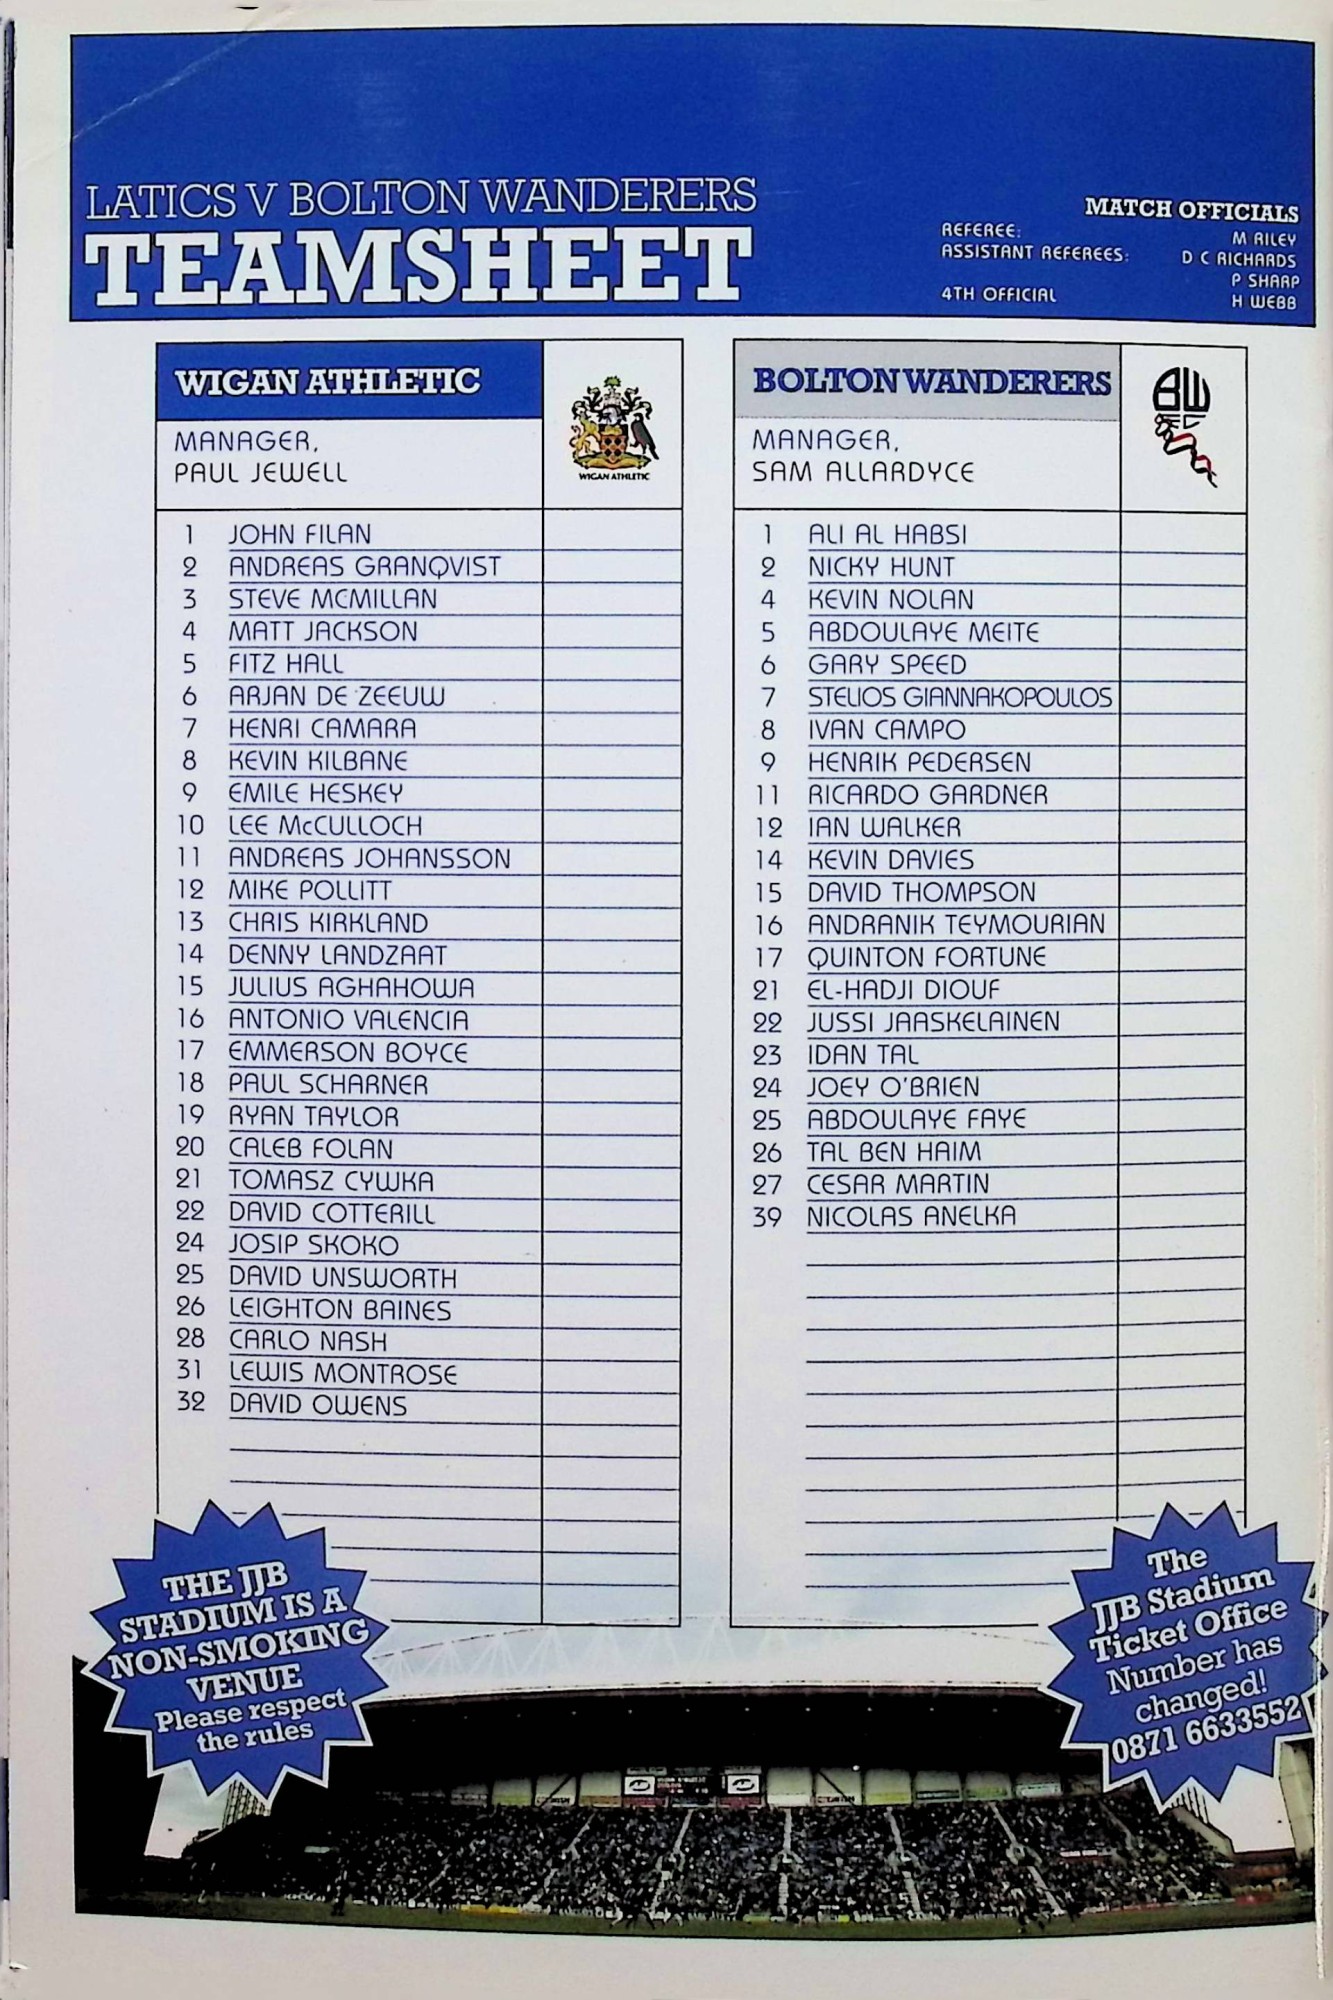 LATICS V BOLTON WANDERERS
TEAMSHEET
MATCH OFFICIALS
REFEREE: M RILEY
ASSISTANT REFEREES: D C RICHARDS
P SHARP
4TH OFFICIAL H WEBB
WIGAN ATHLETIC
MANAGER,
PAUL JEWELL
WIGAN ATHLETIC
1 JOHN FILAN
2 ANDREAS GRANQVIST
3 STEVE MCMILLAN
4 MATT JACKSON
5 FITZ HALL
6 ARJAN DE ZEEUW
7 HENRI CAMARA
8 KEVIN KILBANE
9 EMILE HESKEY
10 LEE McCULLOCH
11 ANDREAS JOHANSSON
12 MIKE POLLITT
13 CHRIS KIRKLAND
14 DENNY LANDZAAT
15 JULIUS AGHAHOWA
16 ANTONIO VALENCIA
17 EMMERSON BOYCE
18 PAUL SCHARNER
19 RYAN TAYLOR
20 CALEB FOLAN
21 TOMASZ CYWKA
22 DAVID COTTERILL
24 JOSIP SKOKO
25 DAVID UNSWORTH
26 LEIGHTON BAINES
28 CARLO NASH
31 LEWIS MONTROSE
32 DAVID OWENS
BOLTON WANDERERS
MANAGER,
SAM ALLARDYCE
BW
FC
1 ALI AL HABSI
2 NICKY HUNT
4 KEVIN NOLAN
5 ABDOULAYE MEITE
6 GARY SPEED
7 STELIOS GIANNAKOPOULOS
8 IVAN CAMPO
9 HENRIK PEDERSEN
11 RICARDO GARDNER
12 IAN WALKER
14 KEVIN DAVIES
15 DAVID THOMPSON
16 ANDRANIK TEYMOURIAN
17 QUINTON FORTUNE
21 EL-HADJI DIOUF
22 JUSSI JAASKELAINEN
23 IDAN TAL
24 JOEY O'BRIEN
25 ABDOULAYE FAYE
26 TAL BEN HAIM
27 CESAR MARTIN
39 NICOLAS ANELKA
THE JJB
STADIUM IS A
NON-SMOKING
VENUE
Please respect
the rules
The
JJB Stadium
Ticket Office
Number has
changed!
0871 6633552